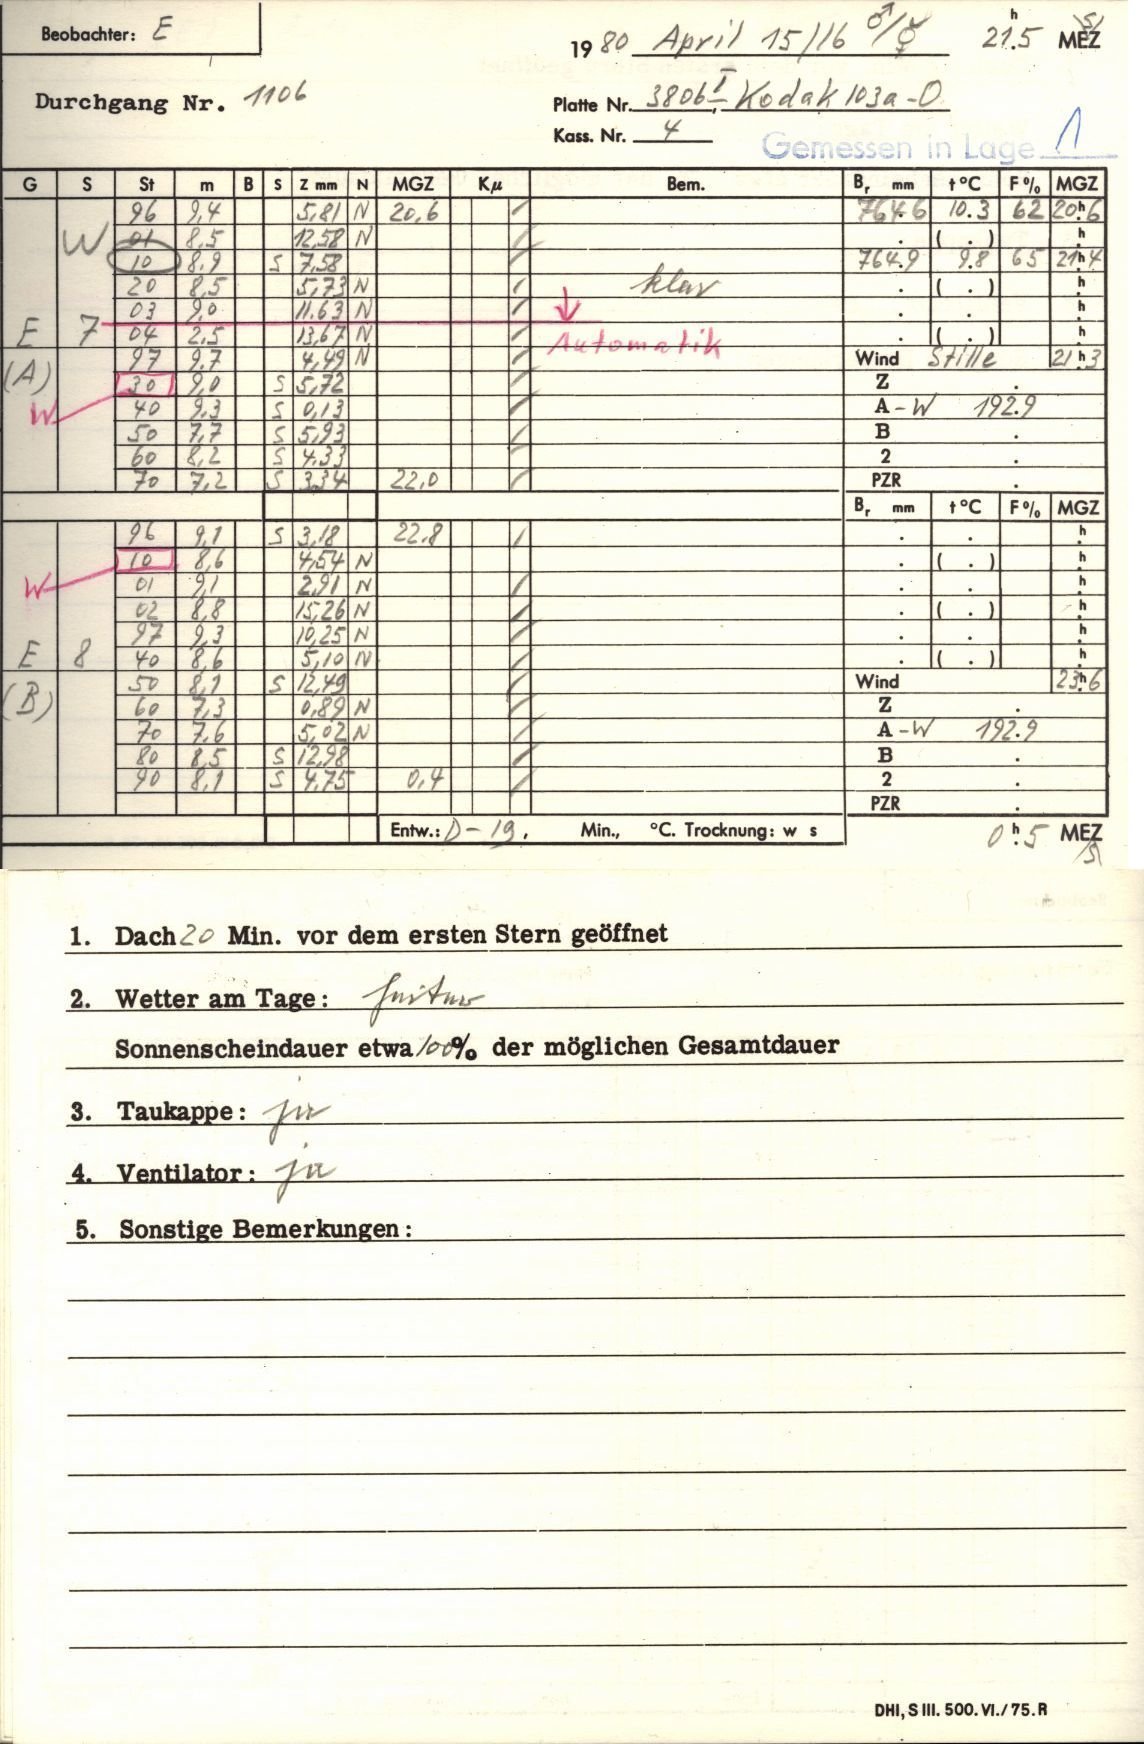 Beobachter: E
1980 April 15/16 ♂/☿ 21h.5 MEZ S
Durchgang Nr. 1106
Platte Nr. 3806 I, Kodak 103a-O
Kass. Nr. 4
Gemessen in Lage 1
G S St m B S Z mm N MGZ Kμ Bem. Br mm t°C F% MGZ
96 9,4 5,81 N 20,6 764.6 10.3 62 20h.6
W 01 8,5 12,58 N ( . ) h.
10 8,9 S 7,58 764.9 9.8 65 21h.4
20 8,5 5,73 N klar ( . ) h.
03 9,0 11,63 N . . h.
E 7 04 2,5 13,67 N Automatik ( . ) h.
(A) 97 9,7 4,49 N Wind Stille 21h.3
30 9,0 S 5,72 Z .
W 40 9,3 S 0,13 A - W 192.9
50 7,7 S 5,93 B .
60 8,2 S 4,33 2 .
70 7,2 S 3,34 22,0 PZR .
Br mm t°C F% MGZ
96 9,1 S 3,18 22,8 . . h.
10 8,6 4,54 N . ( . ) h.
W 01 9,1 2,91 N . . h.
02 8,8 15,26 N . ( . ) h.
97 9,3 10,25 N . . h.
E 8 40 8,6 5,10 N . ( . ) h.
(B) 50 8,1 S 12,49 Wind 23h.6
60 7,3 0,89 N Z .
70 7,6 5,02 N A - W 192.9
80 8,5 S 12,98 B .
90 8,1 S 4,75 0,4 2 .
PZR .
Entw.: D-19, Min., °C. Trocknung: w s 0h.5 MEZ S
1. Dach 20 Min. vor dem ersten Stern geöffnet
2. Wetter am Tage: heiter
Sonnenscheindauer etwa 100% der möglichen Gesamtdauer
3. Taukappe: ja
4. Ventilator: ja
5. Sonstige Bemerkungen:
DHI, S III. 500. VI./75. R